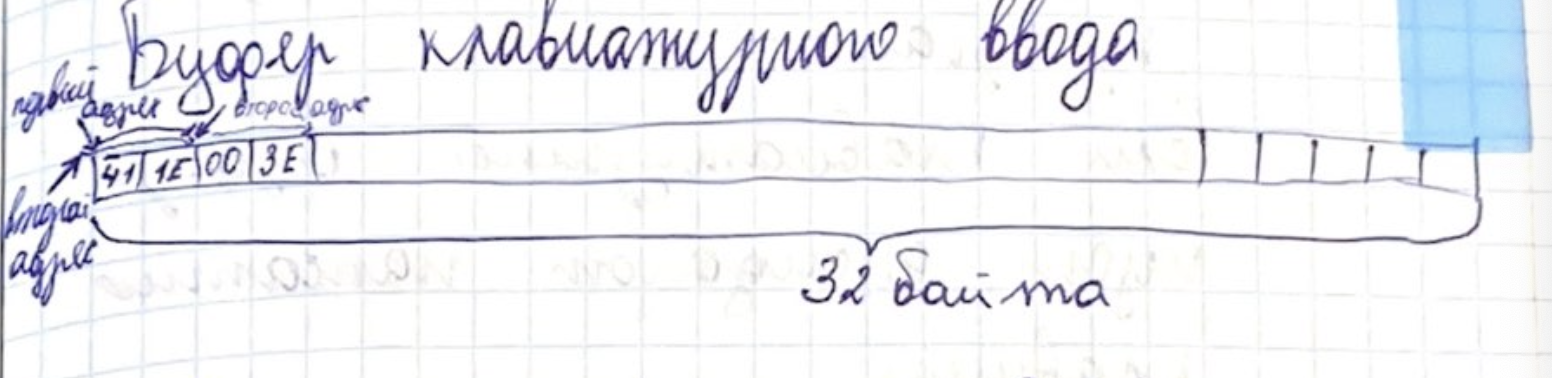 Буфер клавиатурного ввода
первый адрес второй адрес
41 1E 00 3E
второй адрес
32 байта